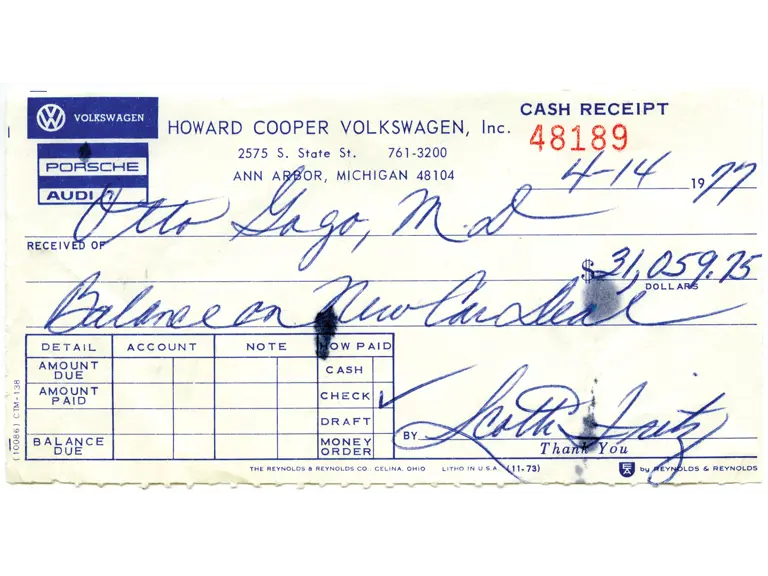 VOLKSWAGEN
PORSCHE
AUDI
HOWARD COOPER VOLKSWAGEN, Inc.
2575 S. State St. 761-3200
ANN ARBOR, MICHIGAN 48104
CASH RECEIPT
48189
4-14 1977
Otto Gago, M.D
RECEIVED OF
$31,059.75
DOLLARS
Balance on New Car Deal
DETAIL ACCOUNT NOTE HOW PAID
AMOUNT DUE CASH
AMOUNT PAID CHECK ✓
DRAFT
BALANCE DUE MONEY ORDER
BY Scott Fritz
Thank You
THE REYNOLDS & REYNOLDS CO. CELINA, OHIO LITHO IN U.S.A. (11-73) by REYNOLDS & REYNOLDS
(10086) CTM-138